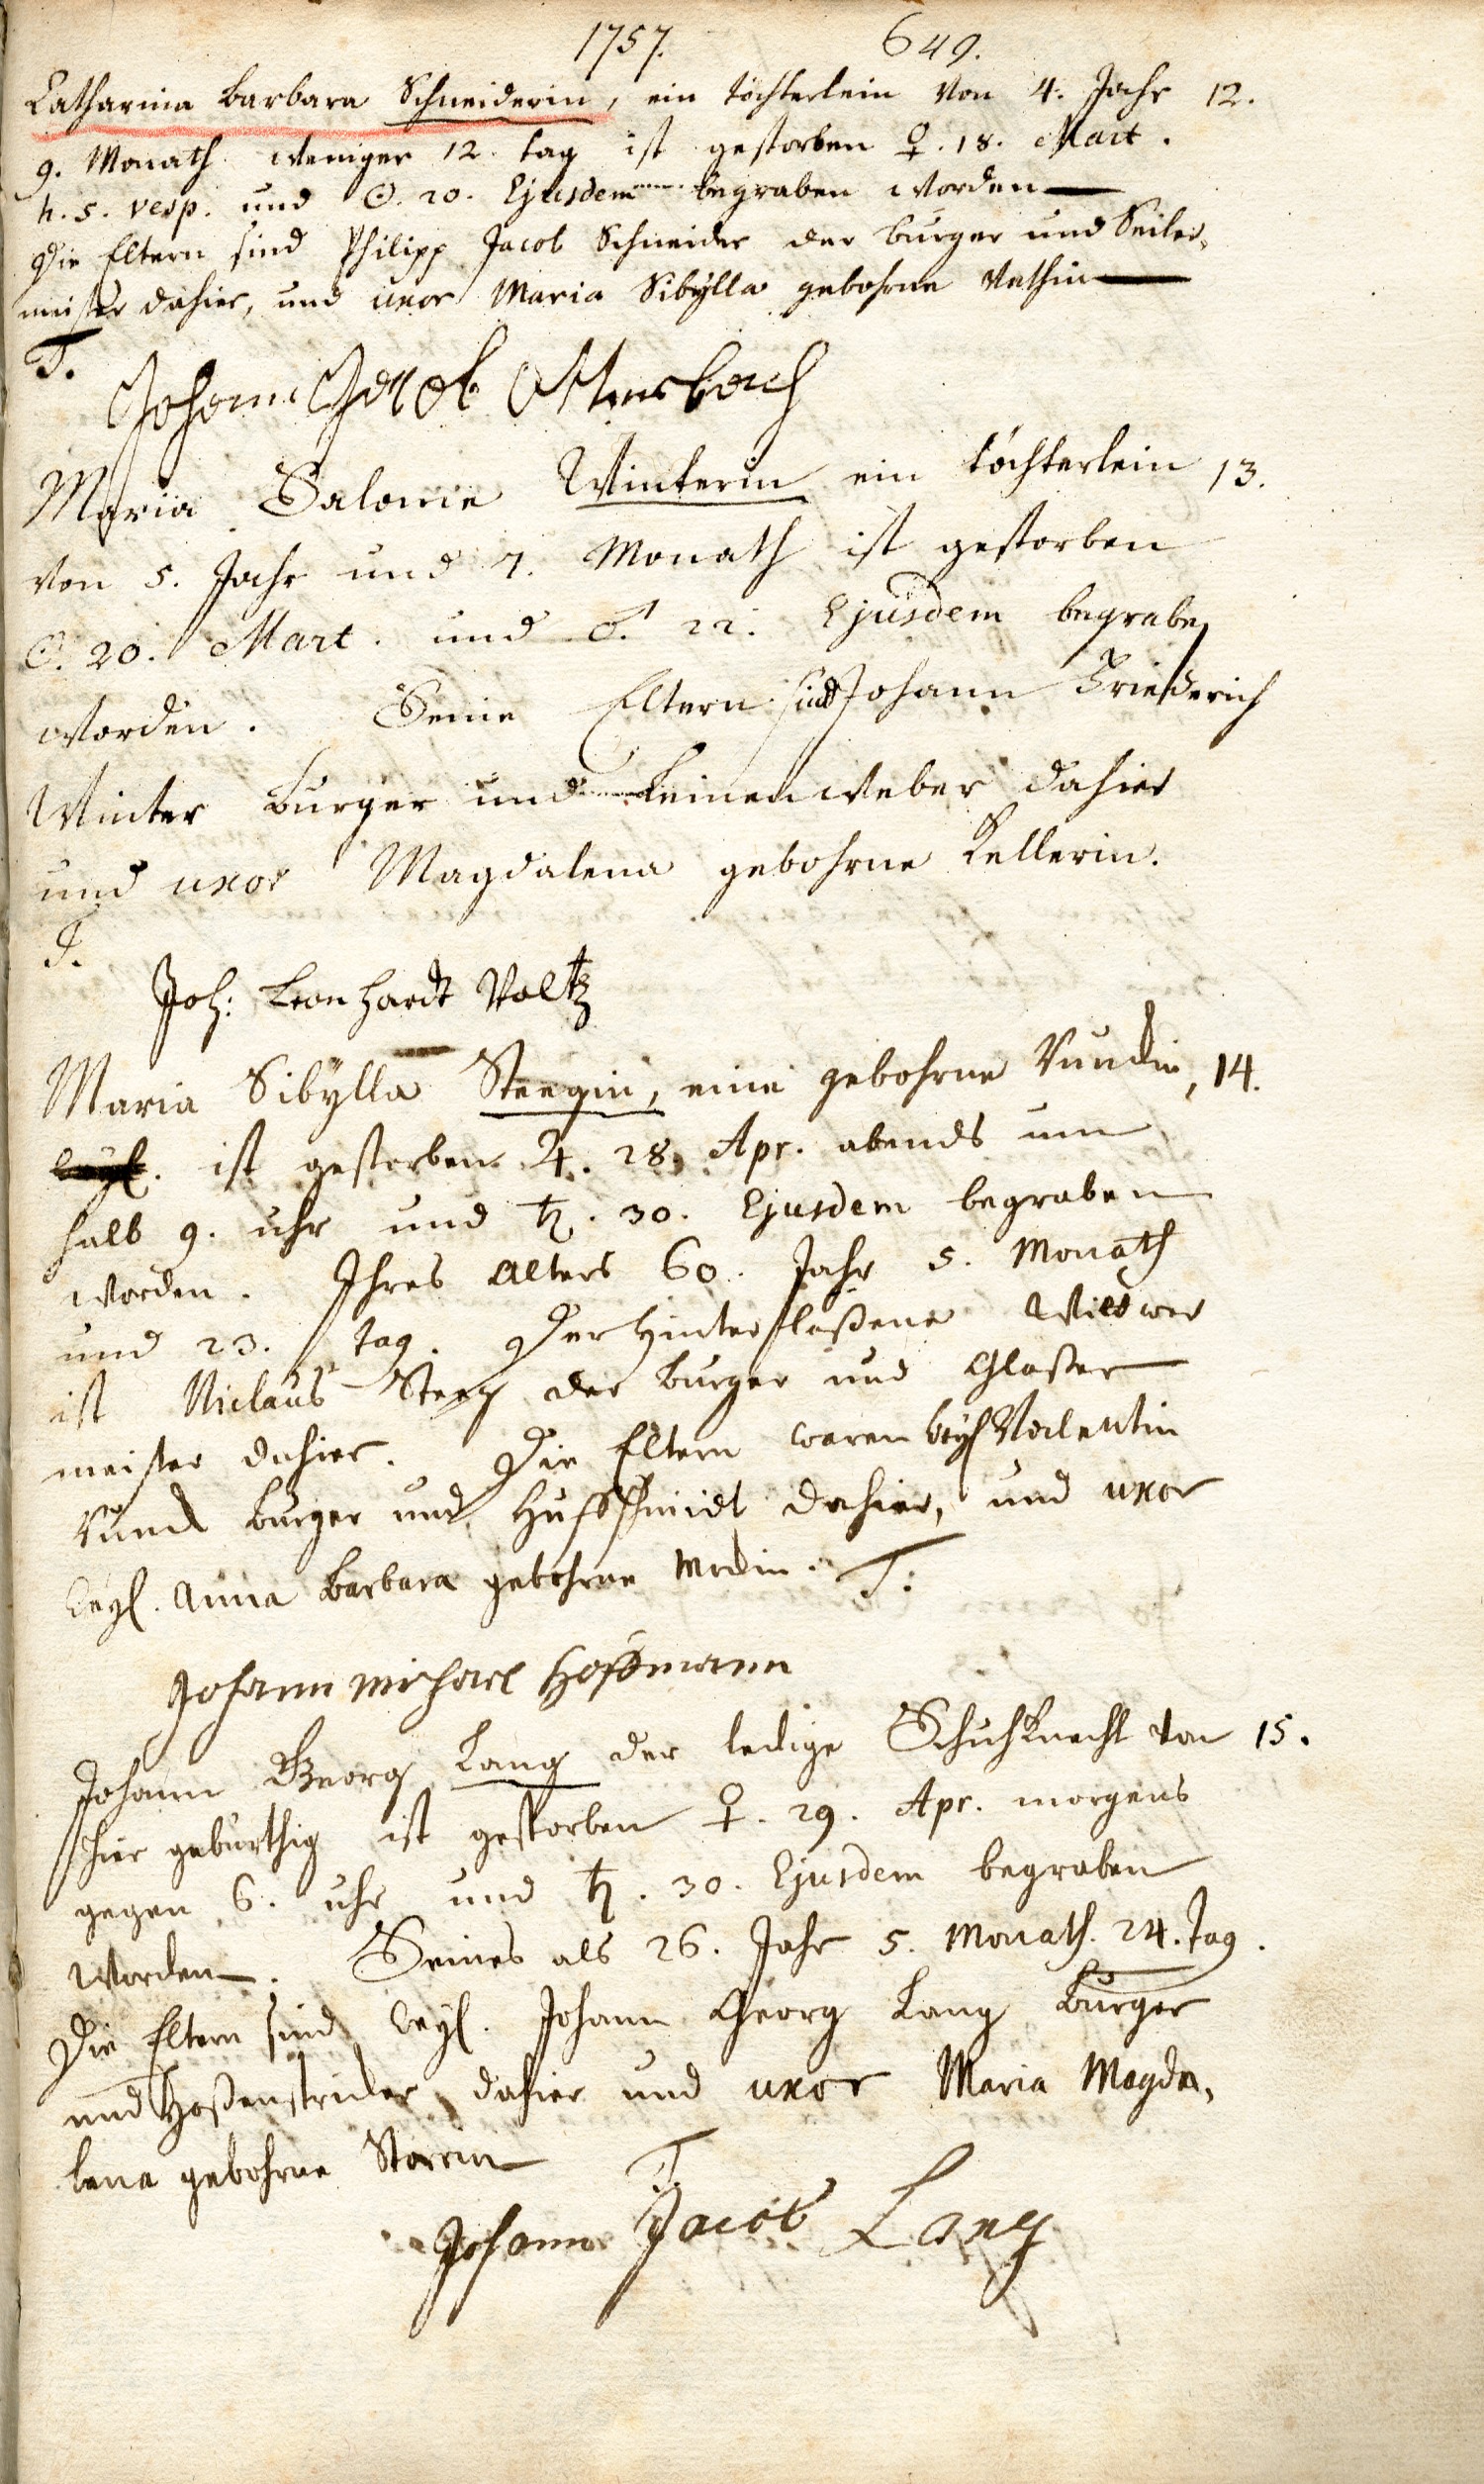 1757. 649.
Catharina Barbara Schneiderin, ein töchterlein von 4. Jahr 12.
9. Monath weniger 12. tag ist gestorben ♀. 18. Mart.
h. 5. vesp. und ☉. 20. Ejusdem begraben worden
Die Eltern sind Philipp Jacob Schneider der burger und Seiler-
meister dahier, und uxor Maria Sibÿlla gebohrne
T.
Johann Jacob
Maria Salome Winterin ein töchterlein 13.
von 5. Jahr und 7. Monath ist gestorben
☉. 20. Mart. und ♂. 22. Ejusdem begraben
worden. Seine Eltern sind Johann Friederich
Winter burger und Leinenweber dahier
und uxor Magdalena gebohrne Kellerin.
T.
Joh: Leonhardt Voltz
Maria Sibÿlla Steegin, eine gebohrne 14.
ist gestorben ♃. 28. Apr. abends um
halb 9. uhr und ♄. 30. Ejusdem begraben
worden. Ihres Alters 60. Jahr 5. Monath
und 23. tag. Der hinterlaßene Wittwer
ist Niclaus Steeg der burger und Glaßer
meister dahier. Die Eltern waren weyl Valentin
burger und Huffschmidt dahier, und uxor
weyl. Anna Barbara gebohrne T:
Johann Michael Hoffmann
Johann Georg Lang der ledige Schuhknecht von 15.
hier gebürthig ist gestorben ♀. 29. Apr. morgens
gegen 6. uhr und ♄. 30. Ejusdem begraben
worden. Seines alt 26. Jahr 5. Monath. 24. Tag.
Die Eltern sind weyl. Johann Georg Lang Burger
und Hoßenstricker dahier und uxor Maria Magda-
lena gebohrne
T.
Johann Jacob Lang